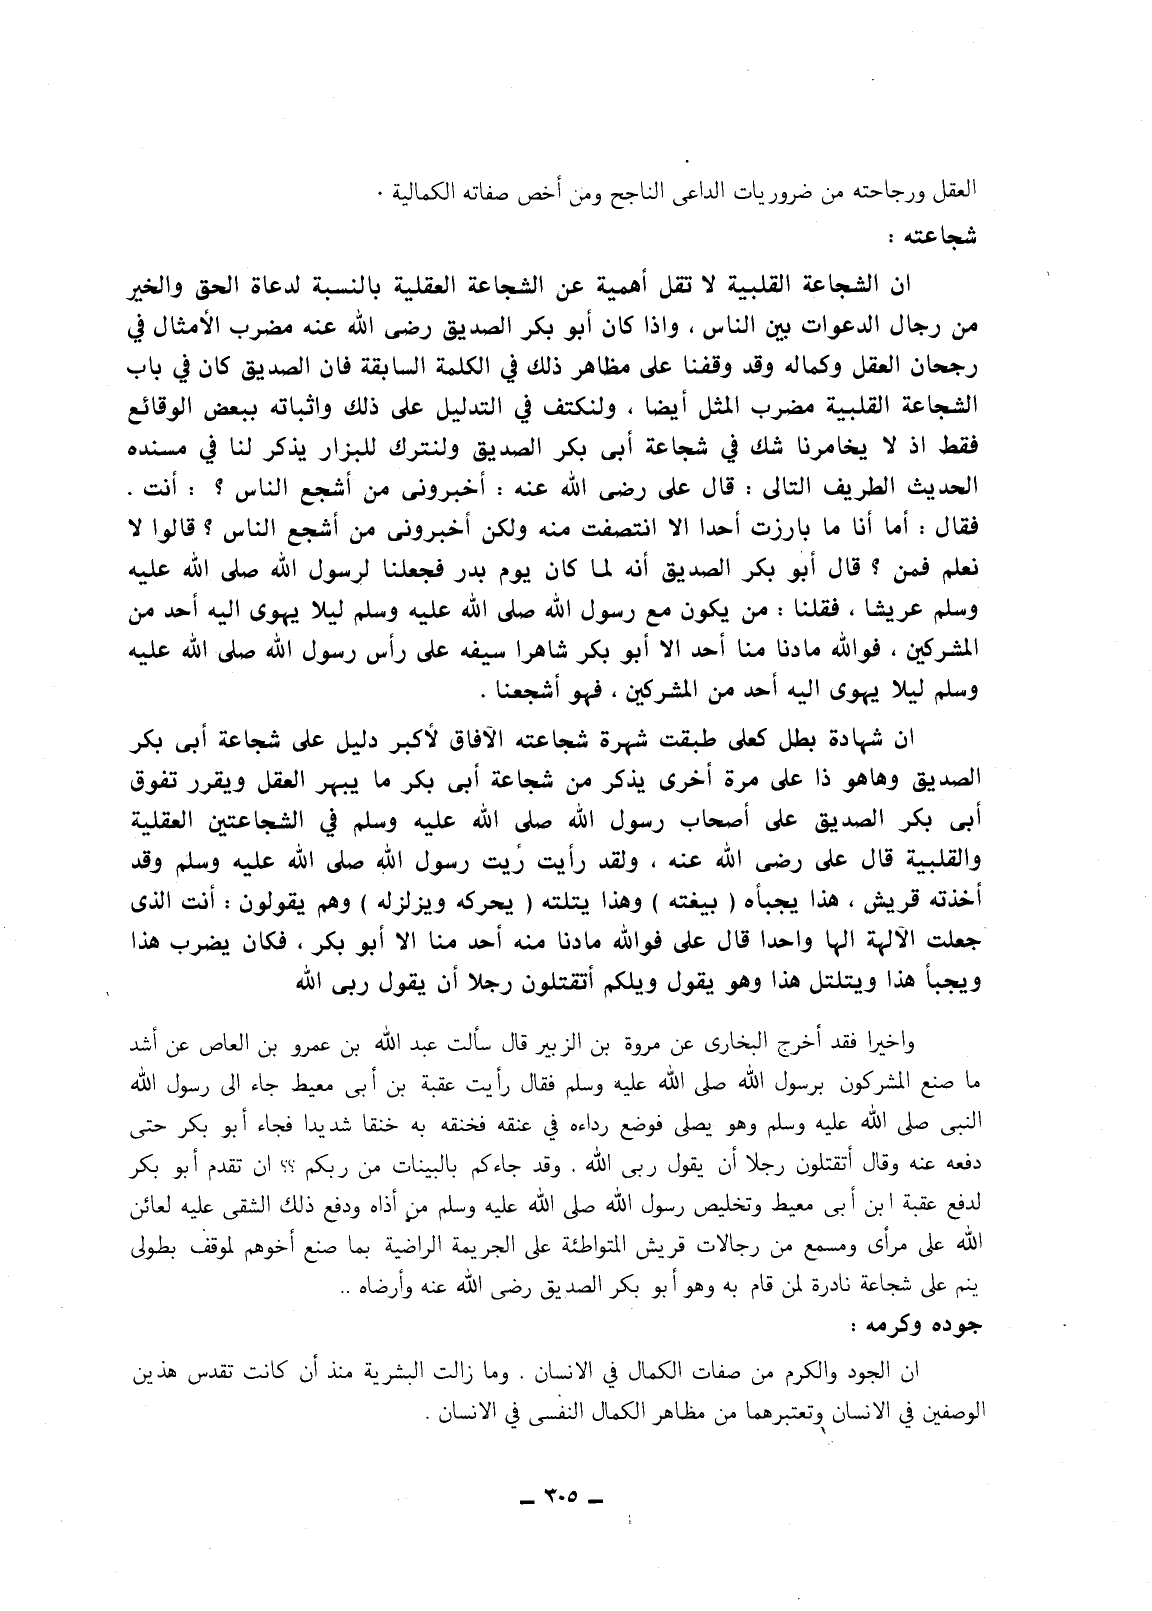 العقل ورجاحته من ضروريات الداعى الناجح ومن أخص صفاته الكمالية .
شجاعته :
ان الشجاعة القلبية لا تقل أهمية عن الشجاعة العقلية بالنسبة لدعاة الحق والخير
من رجال الدعوات بين الناس ، واذا كان أبو بكر الصديق رضى الله عنه مضرب الأمثال في
رجحان العقل وكماله وقد وقفنا على مظاهر ذلك في الكلمة السابقة فان الصديق كان في باب
الشجاعة القلبية مضرب المثل أيضا ، ولنكتف في التدليل على ذلك واثباته ببعض الوقائع
فقط اذ لا يخامرنا شك في شجاعة أبى بكر الصديق ولنترك للبزار يذكر لنا في مسنده
الحديث الطريف التالى : قال على رضى الله عنه : أخبرونى من أشجع الناس ؟ : أنت .
فقال : أما أنا ما بارزت أحدا الا انتصفت منه ولكن أخبرونى من أشجع الناس ؟ قالوا لا
نعلم فمن ؟ قال أبو بكر الصديق أنه لما كان يوم بدر فجعلنا لرسول الله صلى الله عليه
وسلم عريشا ، فقلنا : من يكون مع رسول الله صلى الله عليه وسلم ليلا يهوى اليه أحد من
المشركين ، فوالله مادنا منا أحد الا أبو بكر شاهرا سيفه على رأس رسول الله صلى الله عليه
وسلم ليلا يهوى اليه أحد من المشركين ، فهو أشجعنا .
ان شهادة بطل كعلى طبقت شهرة شجاعته الآفاق لأكبر دليل على شجاعة أبى بكر
الصديق وهاهو ذا على مرة أخرى يذكر من شجاعة أبى بكر ما يبهر العقل ويقرر تفوق
أبى بكر الصديق على أصحاب رسول الله صلى الله عليه وسلم في الشجاعتين العقلية
والقلبية قال على رضى الله عنه ، ولقد رأيت رُيت رسول الله صلى الله عليه وسلم وقد
أخذته قريش ، هذا يجبأه ( بيغته ) وهذا يتلته ( يحركه ويزلزله ) وهم يقولون : أنت الذى
جعلت الآلهة الها واحدا قال على فوالله مادنا منه أحد منا الا أبو بكر ، فكان يضرب هذا
ويجبأ هذا ويتلتل هذا وهو يقول ويلكم أتقتلون رجلا أن يقول ربى الله
واخيرا فقد أخرج البخارى عن مروة بن الزبير قال سألت عبد الله بن عمرو بن العاص عن أشد
ما صنع المشركون برسول الله صلى الله عليه وسلم فقال رأيت عقبة بن أبى معيط جاء الى رسول الله
النبى صلى الله عليه وسلم وهو يصلى فوضع رداءه في عنقه فخنقه به خنقا شديدا فجاء أبو بكر حتى
دفعه عنه وقال أتقتلون رجلا أن يقول ربى الله . وقد جاءكم بالبينات من ربكم ؟؟ ان تقدم أبو بكر
لدفع عقبة ابن أبى معيط وتخليص رسول الله صلى الله عليه وسلم من أذاه ودفع ذلك الشقى عليه لعائن
الله على مرأى ومسمع من رجالات قريش المتواطئة على الجريمة الراضية بما صنع أخوهم لموقف بطولى
ينم على شجاعة نادرة لمن قام به وهو أبو بكر الصديق رضى الله عنه وأرضاه ..
جوده وكرمه :
ان الجود والكرم من صفات الكمال في الانسان . وما زالت البشرية منذ أن كانت تقدس هذين
الوصفين في الانسان وتعتبرهما من مظاهر الكمال النفسى في الانسان .
ــ ٣٠٥ ــ